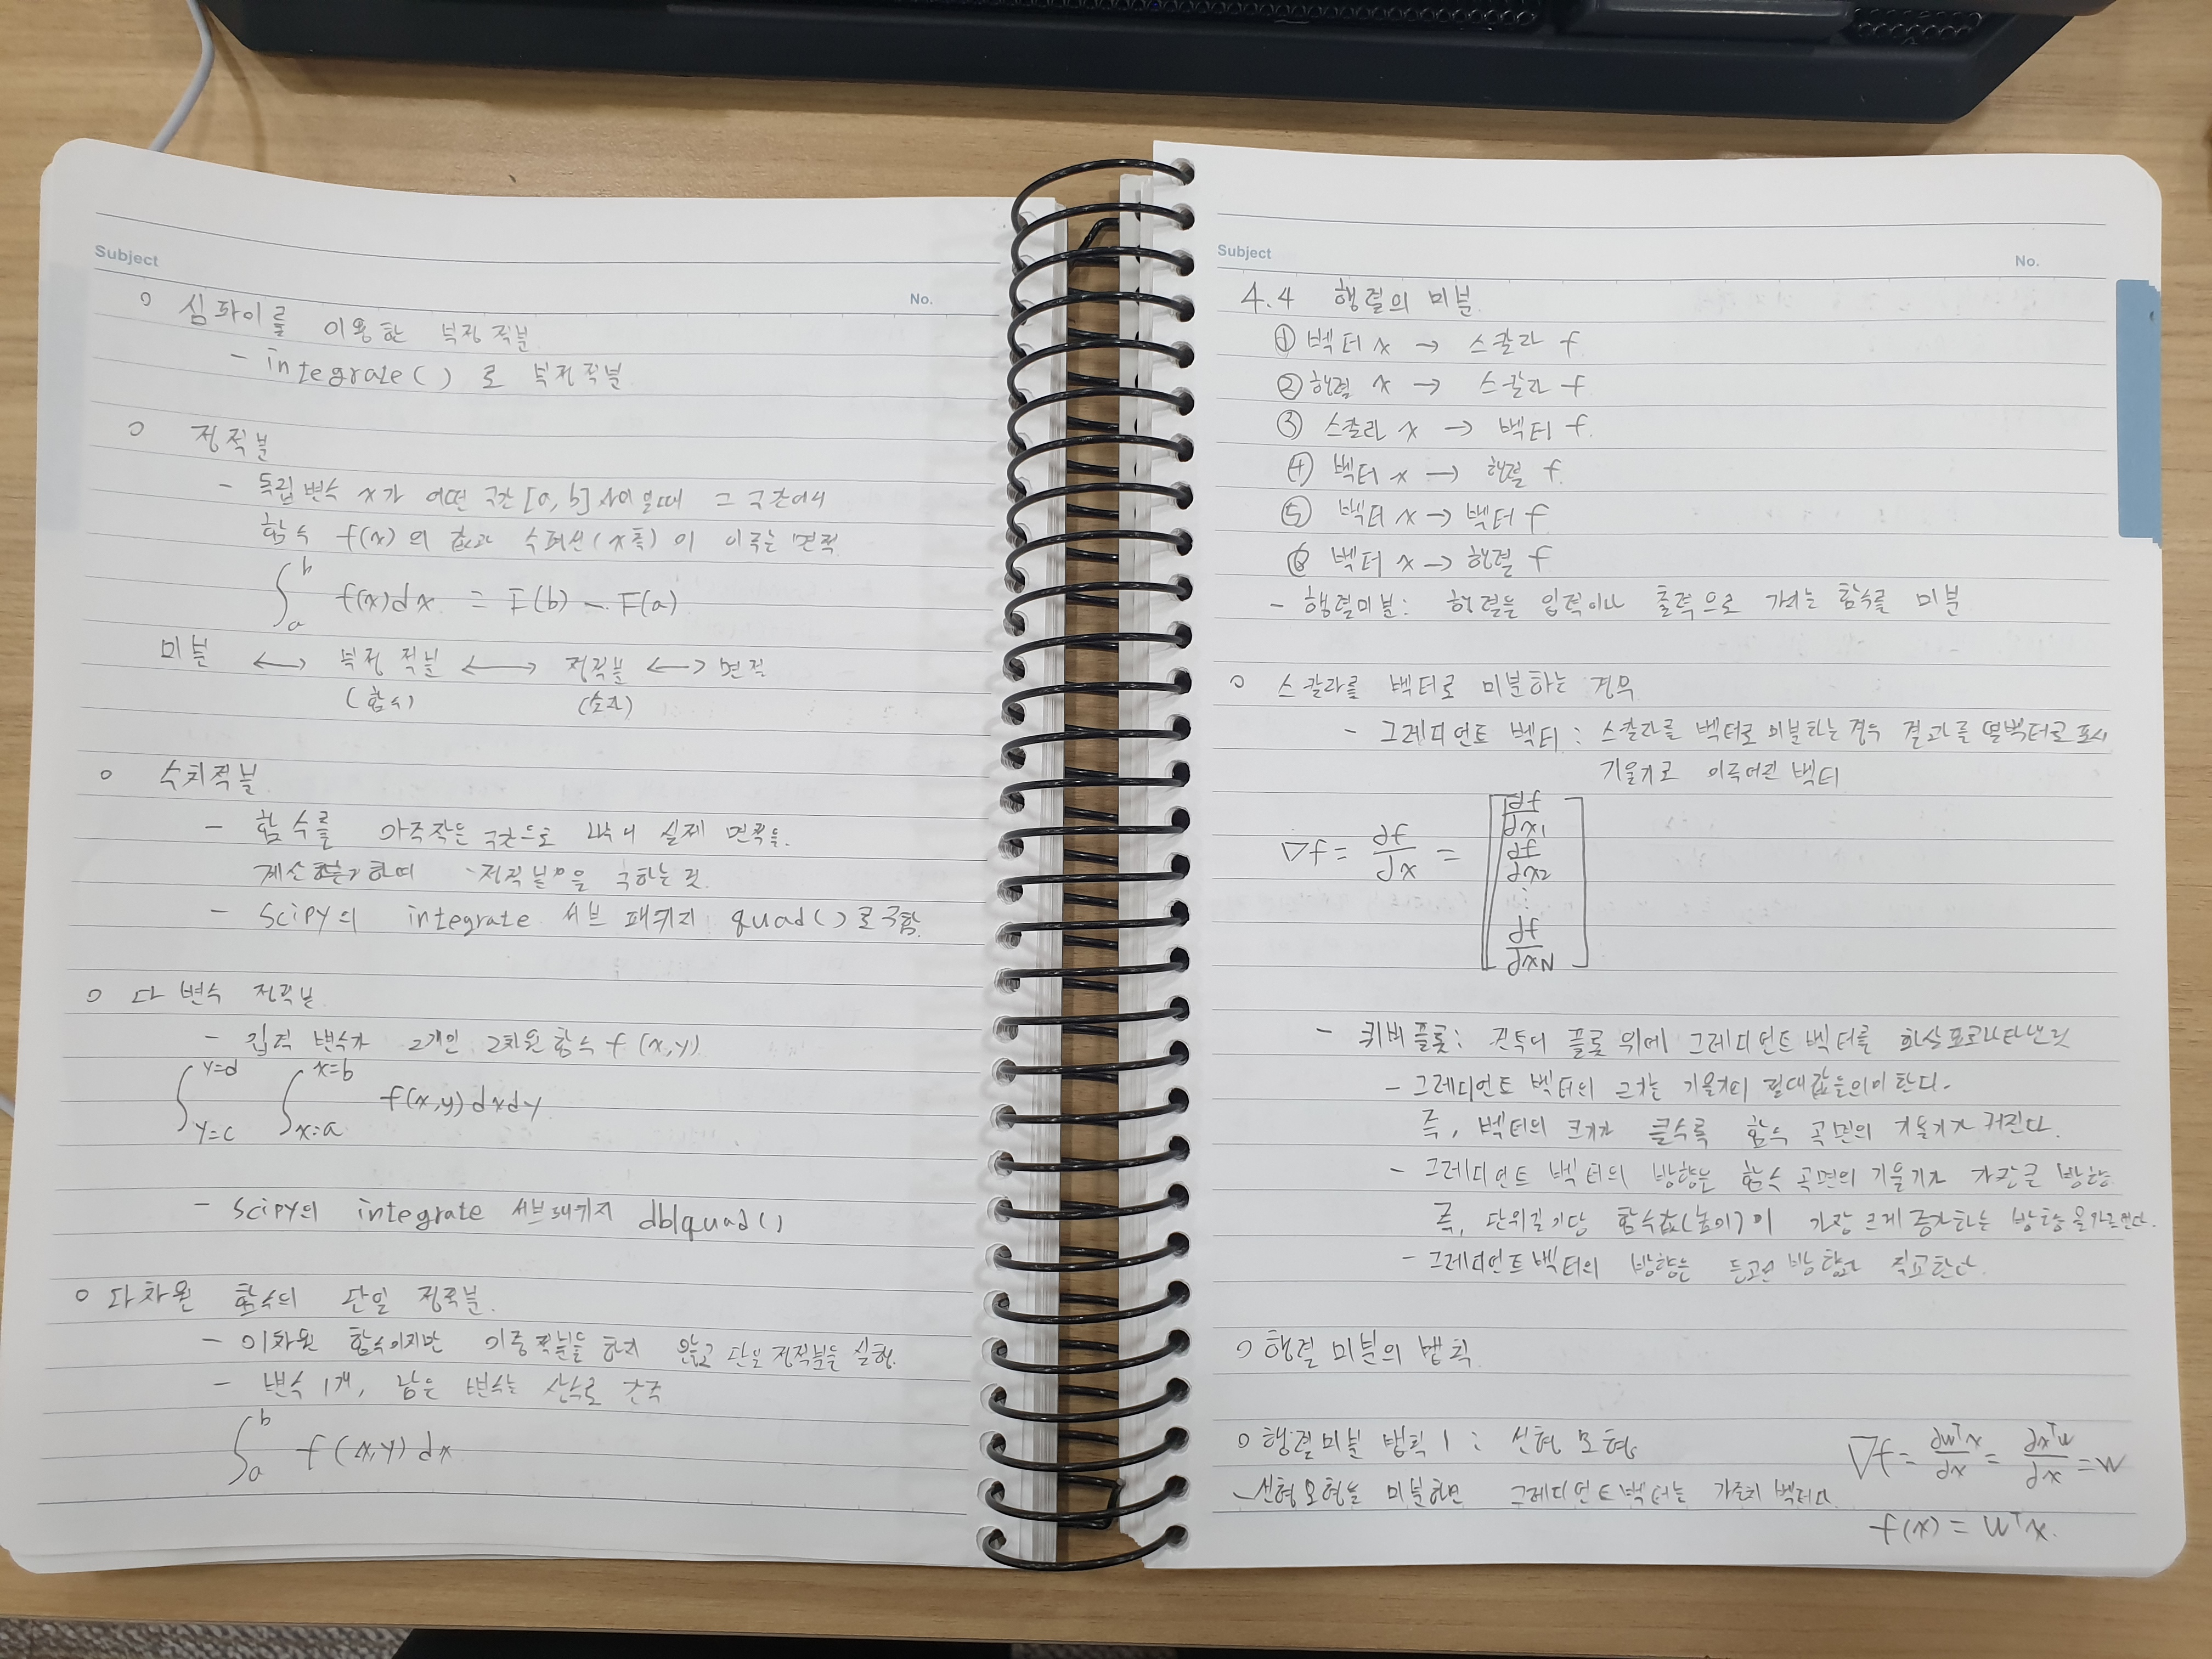 Subject
No.
○ 심파이를 이용한 부정적분
- integrate() 로 부정적분
○ 정적분
- 독립변수 x가 어떤 구간[a, b] 사이일때 그 구간에서
함수 f(x)의 값과 수평선(x축)이 이루는 면적
∫_a^b f(x)dx = F(b) - F(a)
미분 ↔ 부정적분 ↔ 정적분 ↔ 면적
(함수) (숫자)
○ 수치적분
- 함수를 아주작은 구간으로 나누어 실제 면적을
계산 하여 "정적분"을 구하는 것.
- Scipy의 integrate 서브 패키지 quad()로구함.
○ 다변수 정적분
- 입력 변수가 2개인 2차원함수 f(x,y)
∫_{y=c}^{y=d} ∫_{x=a}^{x=b} f(x,y)dxdy
- Scipy의 integrate 서브패키지 dblquad()
○ 다차원 함수의 단일 정적분.
- 이차원 함수이지만 이중적분을 하지 않고 단일 정적분을 실행.
- 변수 1개, 남은 변수는 상수로 간주
∫_a^b f(x,y)dx
Subject
No.
4.4 행렬의 미분.
① 벡터 x → 스칼라 f
② 행렬 x → 스칼라 f
③ 스칼라 x → 벡터 f.
④ 벡터 x → 행렬 f.
⑤ 벡터 x → 벡터 f
⑥ 벡터 x → 행렬 f
- 행렬미분: 행렬을 입력이나 출력으로 가지는 함수를 미분
○ 스칼라를 벡터로 미분하는 경우
- 그레디언트 벡터 : 스칼라를 벡터로 미분하는 경우 결과를 열벡터로 표시
기울기로 이루어진 벡터
∇f = ∂f/∂x = [∂f/∂x1 ∂f/∂x2 ⋮ ∂f/∂xN]
- 퀴버플롯: 컨투어 플롯 위에 그레디언트 벡터를 화살표로나타낸것
- 그레디언트 벡터의 크기는 기울기의 절대값을의미한다.
즉, 벡터의 크기가 클수록 함수 곡면의 기울기가 커진다.
- 그레디언트 벡터의 방향은 함수 곡면의 기울기가 가장큰 방향
즉, 단위길이당 함수값(높이)이 가장 크게 증가하는 방향을가르킨다.
- 그레디언트벡터의 방향은 등고선 방향과 직교한다.
○ 행렬 미분의 법칙
○ 행렬미분 법칙 1 : 선형 모형 ∇f = ∂wᵀx/∂x = ∂xᵀw/∂x = w
- 선형모형을 미분하면 그레디언트벡터는 가중치 벡터다.
f(x) = wᵀx.